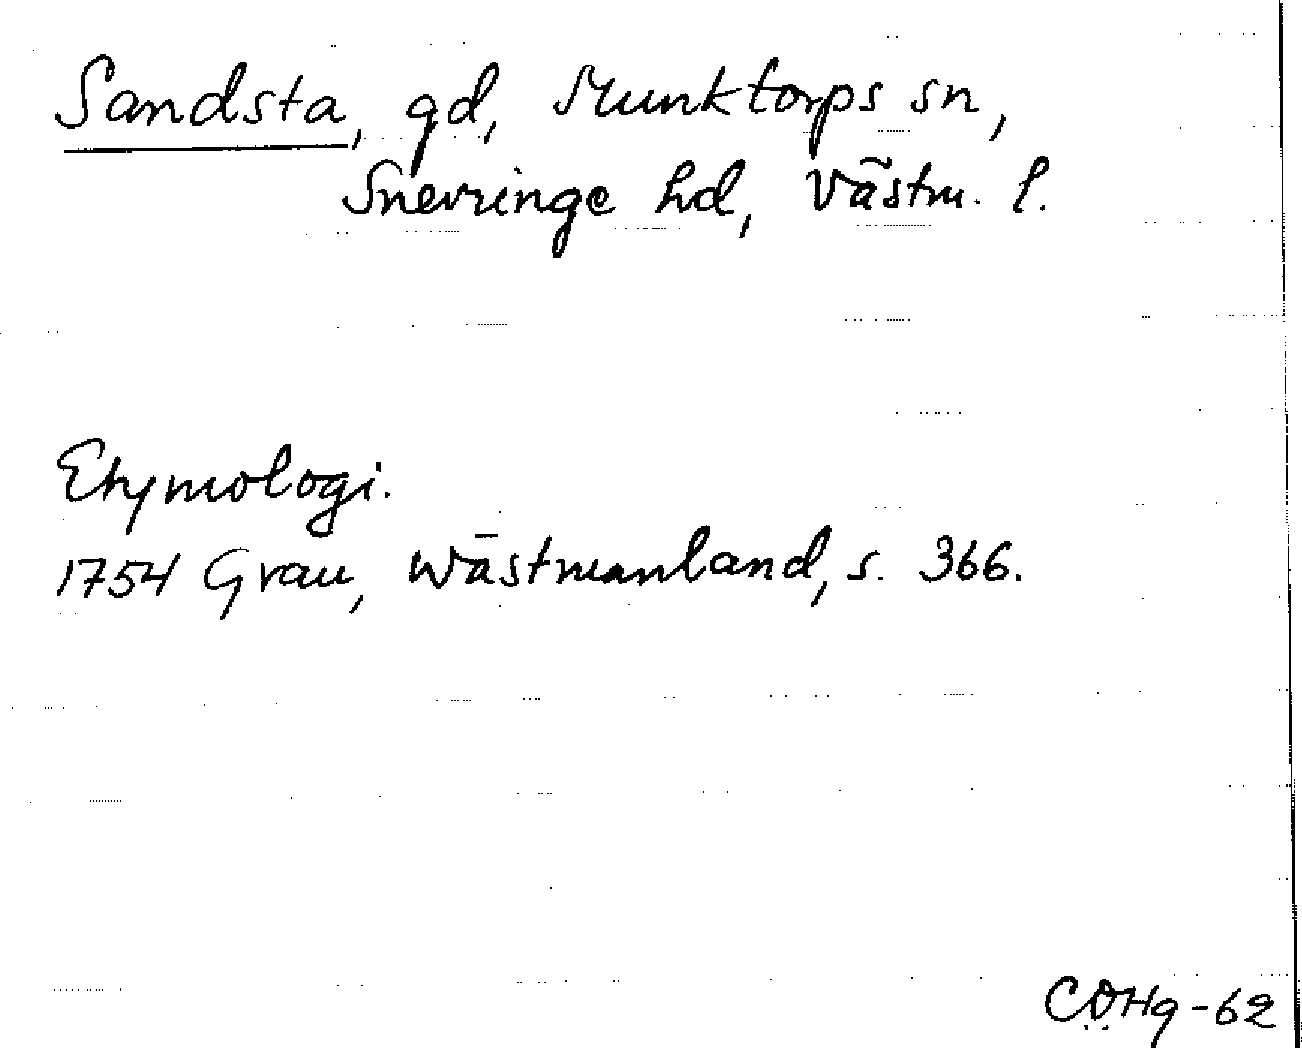 Sandsta, gd, Munktorps sn,
Snevringe hd, Västm. l.
Etymologi.
1754 Grau, Wästmanland, s. 366.
COHg-62